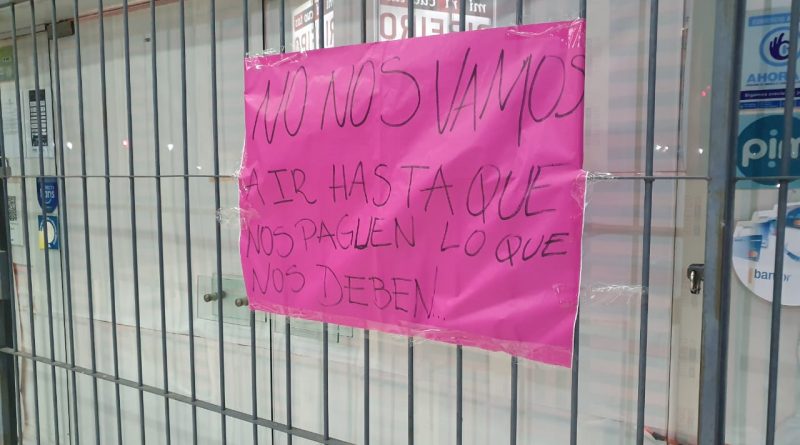 mi
RIBEIRO
NO NOS VAMOS
A IR HASTA QUE
NOS PAGUEN LO QUE
NOS DEBEN...
AHORA
pim